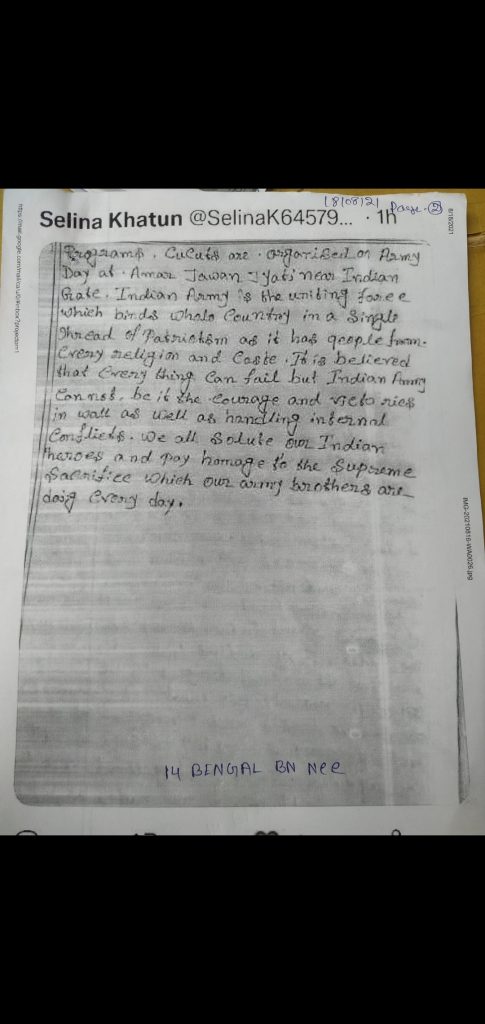 18/08/21 Page-②
Selina Khatun @SelinaK64579... · 1h
8/18/2021
Programs, CuCuts are organised on Army
Day at Amar Jawan Jyati near Indian
Gate. Indian Army is the uniting force
which binds whole Country in a Single
thread of Patriotism as it has people from
Every religion and Caste. It is believed
that Every thing Can fail but Indian Army
Cannot, be it the courage and victories
in watt as well as handling internal
Conflicts. We all Solute our Indian
heroes and pay homage to the Supreme
Sacrifice which our army brothers are
doing Every day.
IMG-20210816-WA0026.jpg
14 BENGAL BN Ncc